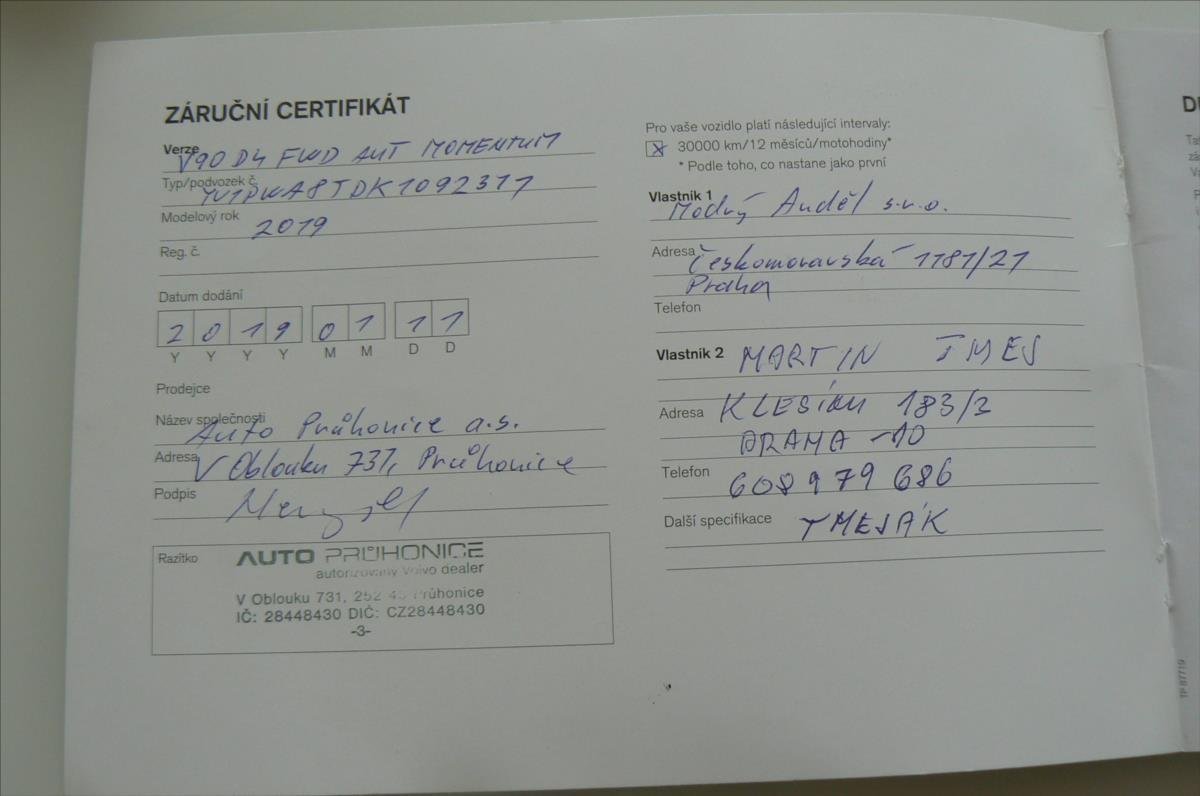 ZÁRUČNÍ CERTIFIKÁT
Verze V90 D4 FWD AUT MOMENTUM
Typ/podvozek č. YV1PWA8TDK1092377
Modelový rok 2019
Reg. č.
Datum dodání
2 0 1 9 0 1 1 1
Y Y Y Y M M D D
Prodejce
Název společnosti Auto Průhonice a.s.
Adresa V Oblouku 731, Průhonice
Podpis
Razítko
AUTO PRŮHONICE
autorizovaný Volvo dealer
V Oblouku 731, 252 43 Průhonice
IČ: 28448430 DIČ: CZ28448430
-3-
Pro vaše vozidlo platí následující intervaly:
x 30000 km/12 měsíců/motohodiny*
* Podle toho, co nastane jako první
Vlastník 1 Modrý Anděl s.r.o.
Adresa Českomoravská 1181/21
Praha
Telefon
Vlastník 2 MARTIN TMEJ
Adresa 183/3
PRAHA -10
Telefon 608 979 686
Další specifikace TMEJÁK
TP 87719